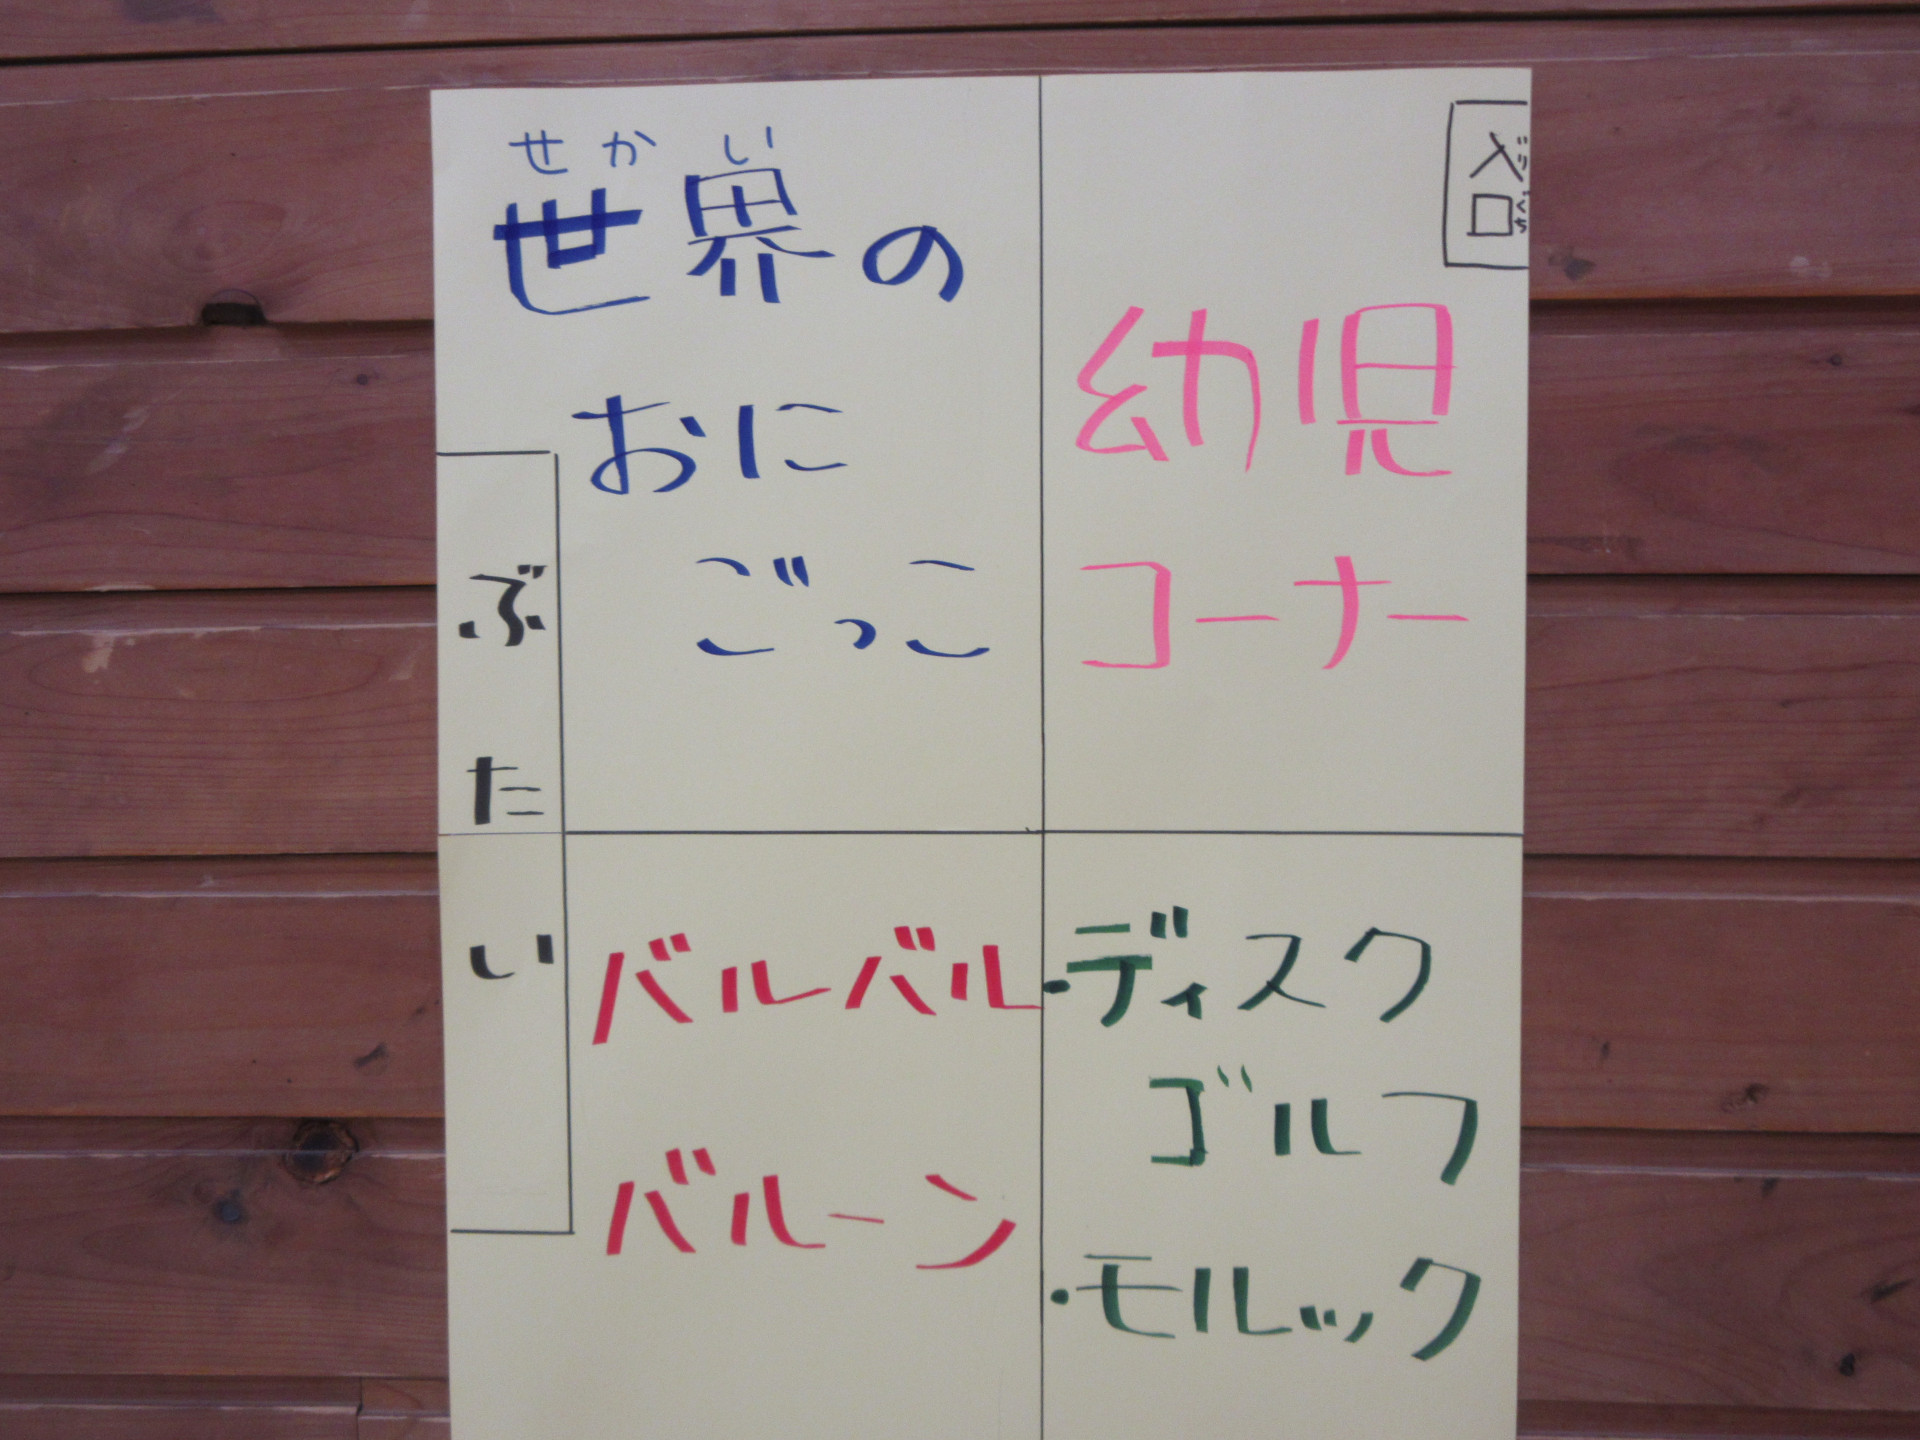 せかい
世界の
おに
ごっこ
入口
いりぐち
幼児
コーナー
ぶたい
バルバル
バルーン
・ディスク
ゴルフ
・モルック